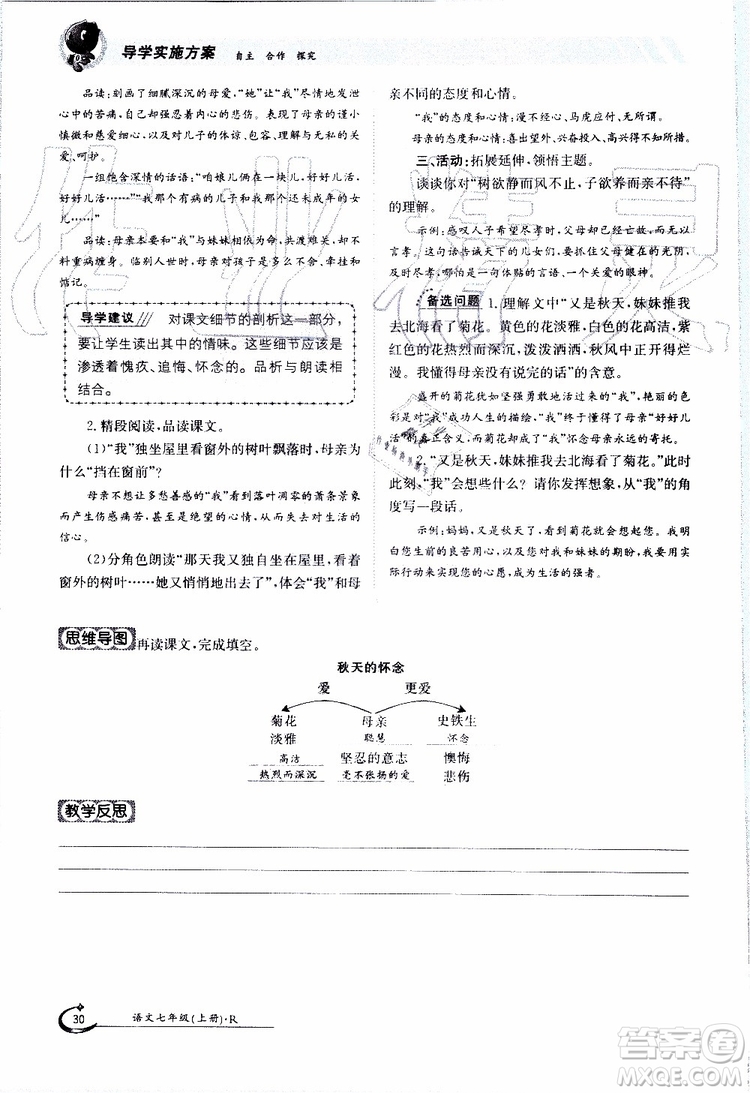 导学实施方案 自主 合作 探究
品读：刻画了细腻深沉的母爱，“她”让“我”尽情地发泄
心中的苦痛，自己却强忍着内心的悲伤。表现了母亲的谨小
慎微和慈爱细心，以及她对儿子的体谅、包容、理解与无私的关
爱、呵护。
一组饱含深情的话语：“咱娘儿俩在一块儿，好好儿活，
好好儿活……”“我那个有病的儿子和我那个还未成年的女
儿……”
品读：母亲本要和“我”与妹妹组合为家，共渡难关，却不
料重病缠身。临别人世时，母亲对孩子是多么不舍、多么
惦记。
导学建议 对课文细节的剖析这一部分，
要让学生读出其中的情味。这些细节应该是
渗透着愧疚、追悔、怀念的。品析与朗读相
结合。
2. 精段阅读，品读课文。
(1)“我”独坐屋里看窗外的树叶飘落时，母亲为
什么“挡在窗前”？
母亲不想让多愁善感的“我”看到落叶凋零的萧条景象
而产生伤感痛苦，甚至是绝望的心情，从而失去对生活的
信心。
(2)分角色朗读“那天我又独自坐在屋里，看着
窗外的树叶……她又悄悄地出去了”，体会“我”和母
亲不同的态度和心情。
“我”的态度和心情：漫不经心、马虎应付、无所谓。
母亲的态度和心情：喜出望外、兴奋投入、高兴得不知如何是好。
三、活动：拓展延伸，领悟主题。
谈谈你对“树欲静而风不止，子欲养而亲不待”
的理解。
示例：感叹人子希望尽孝时，父母却已经亡故，而自己无以
言孝。这句话告诫天下的儿女们，要抓住父母健在的光阴，
及时尽孝，哪怕是一句体贴的言语、一个关爱的眼神。
备选问题 1. 理解文中“又是秋天，妹妹推我
去北海看了菊花。黄色的花淡雅，白色的花高洁，紫
红色的花热烈而深沉，泼泼洒洒，秋风中正开得烂
漫。我懂得母亲没有说完的话”的含意。
盛开的菊花犹如坚强勇敢地生活过来的我，艳丽的色
彩是对“我”成功人生的描绘，“我”终于知道母亲“好好儿
活”的真正含义，而菊花成为“我”怀念母亲永远的寄托。
2. “又是秋天，妹妹推我去北海看了菊花。”此时
此刻，“我”会想些什么？请你发挥想象，从“我”的角
度写一段话。
示例：妈妈，又是秋天了，看到菊花就会想起您。我
明白您当年的良苦用心，您对我和妹妹的期盼，我要用
实际行动来实现您的心愿，成为生活的强者。
思维导图 再读课文，完成填空。
秋天的怀念
爱 更爱
菊花 母亲 史铁生
淡雅 聪慧 怀念
高洁 坚忍的意志 懊悔
热烈而深沉 毫不张扬的爱 悲伤
教学反思
30 语文七年级(上册)·R
答案圈
MXQE.COM